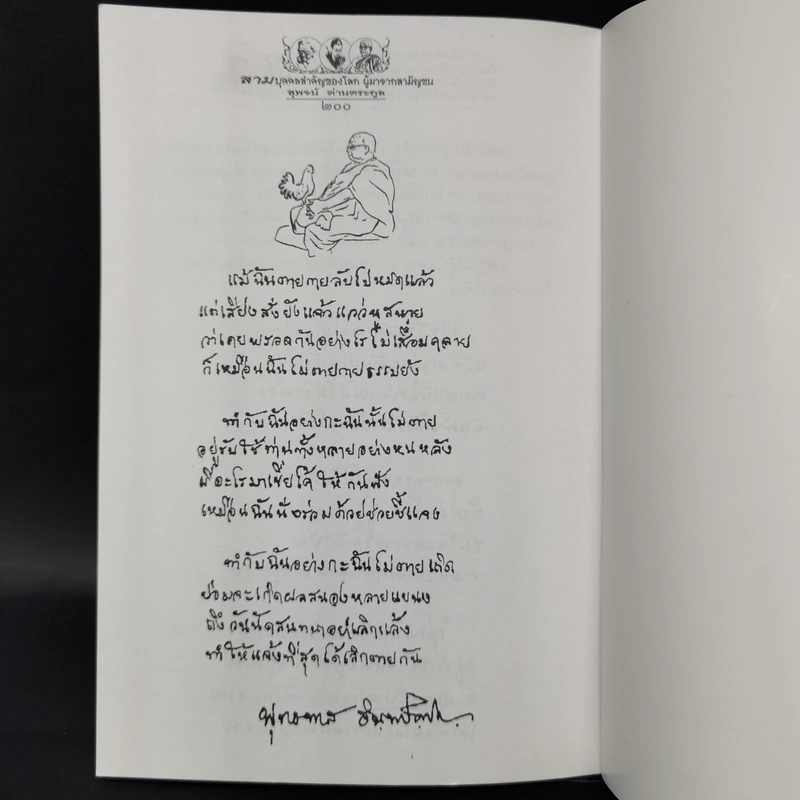 สามบุคคลสำคัญของโลก ผู้มาจากสามัญชน
สุพจน์ ด่านตระกูล
๒๐๐
แม้ฉันตายกายลับไปหมดแล้ว
แต่เสียงสั่งยังแจ้วแว่วหูสหาย
ว่าเคยพรอดกันอย่างไรไม่เสื่อมคลาย
ก็เหมือนฉันไม่ตายกายธรรมยัง
ทำกับฉันอย่างกะฉันนั้นไม่ตาย
อยู่รับใช้ท่านทั้งหลายอย่างหนหลัง
มีอะไรมาเขี่ยไค้ให้กันฟัง
เหมือนฉันนั่งร่วมด้วยช่วยชี้แจง
ทำกับฉันอย่างกะฉันไม่ตายเถิด
ย่อมจะเกิดผลสนองหลายแขนง
ถึงวันนัดสนทนาอย่าเลิกแล้ง
ทำให้แจ้งที่สุดได้เลิกตายกัน
พุทธทาส อินฺทปญฺโญ